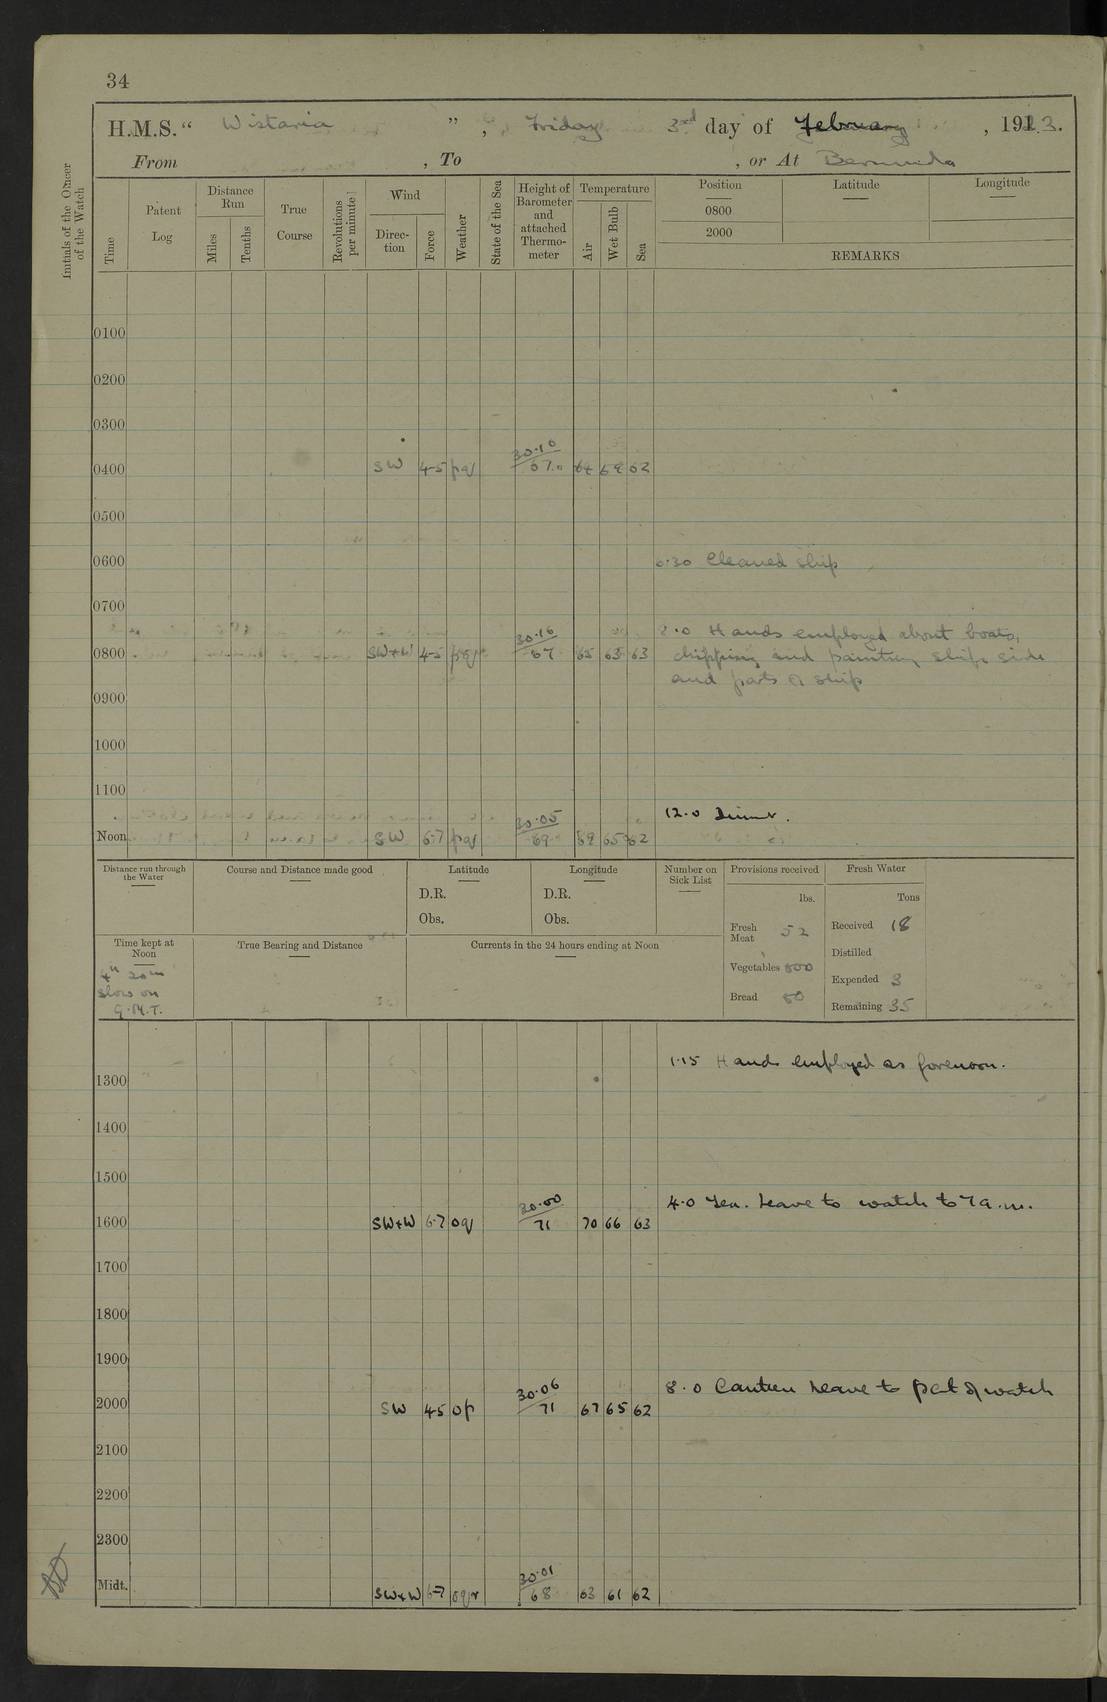 34
H.M.S. "Wistaria", Friday 3rd day of February, 191 3.
From , To , or At Bermuda
Initials of the Officer of the Watch
Time
Patent Log
Distance Run
Miles
Tenths
True Course
Revolutions per minute
Wind
Direction
Force
Weather
State of the Sea
Height of Barometer and attached Thermometer
Temperature
Air
Wet Bulb
Sea
Position
Latitude
Longitude
0800
2000
REMARKS
0100
0200
0300
30.10
0400 SW 4-5 pq 67 62
0500
0600 6.30 Cleaned ship
0700
8.0 Hands employed about boats,
30.16
0800 SW+W 4-5 67 65 63 63 chipping and painting ships side
and parts of ship
0900
1000
1100
12.0 Dinner.
30.05
Noon SW 6-7 pq 69 69 65 62
Distance run through the Water
Course and Distance made good
Latitude
D.R.
Obs.
Longitude
D.R.
Obs.
Number on Sick List
Provisions received
lbs.
Fresh Meat 52
Vegetables
Bread 80
Fresh Water
Tons
Received 18
Distilled
Expended 3
Remaining 35
Time kept at Noon
4h 20m
slow on
G.M.T.
True Bearing and Distance
Currents in the 24 hours ending at Noon
1.15 Hands employed as forenoon.
1300
1400
1500
4.0 Tea. Leave to watch to 7 a.m.
30.00
1600 SW+W 6-7 oq 71 70 66 63
1700
1800
1900
8.0 Canteen leave to part of watch
30.06
2000 SW 4-5 op 71 67 65 62
2100
2200
2300
30.01
Midt. SW+W 6-7 oqr 68 63 61 62